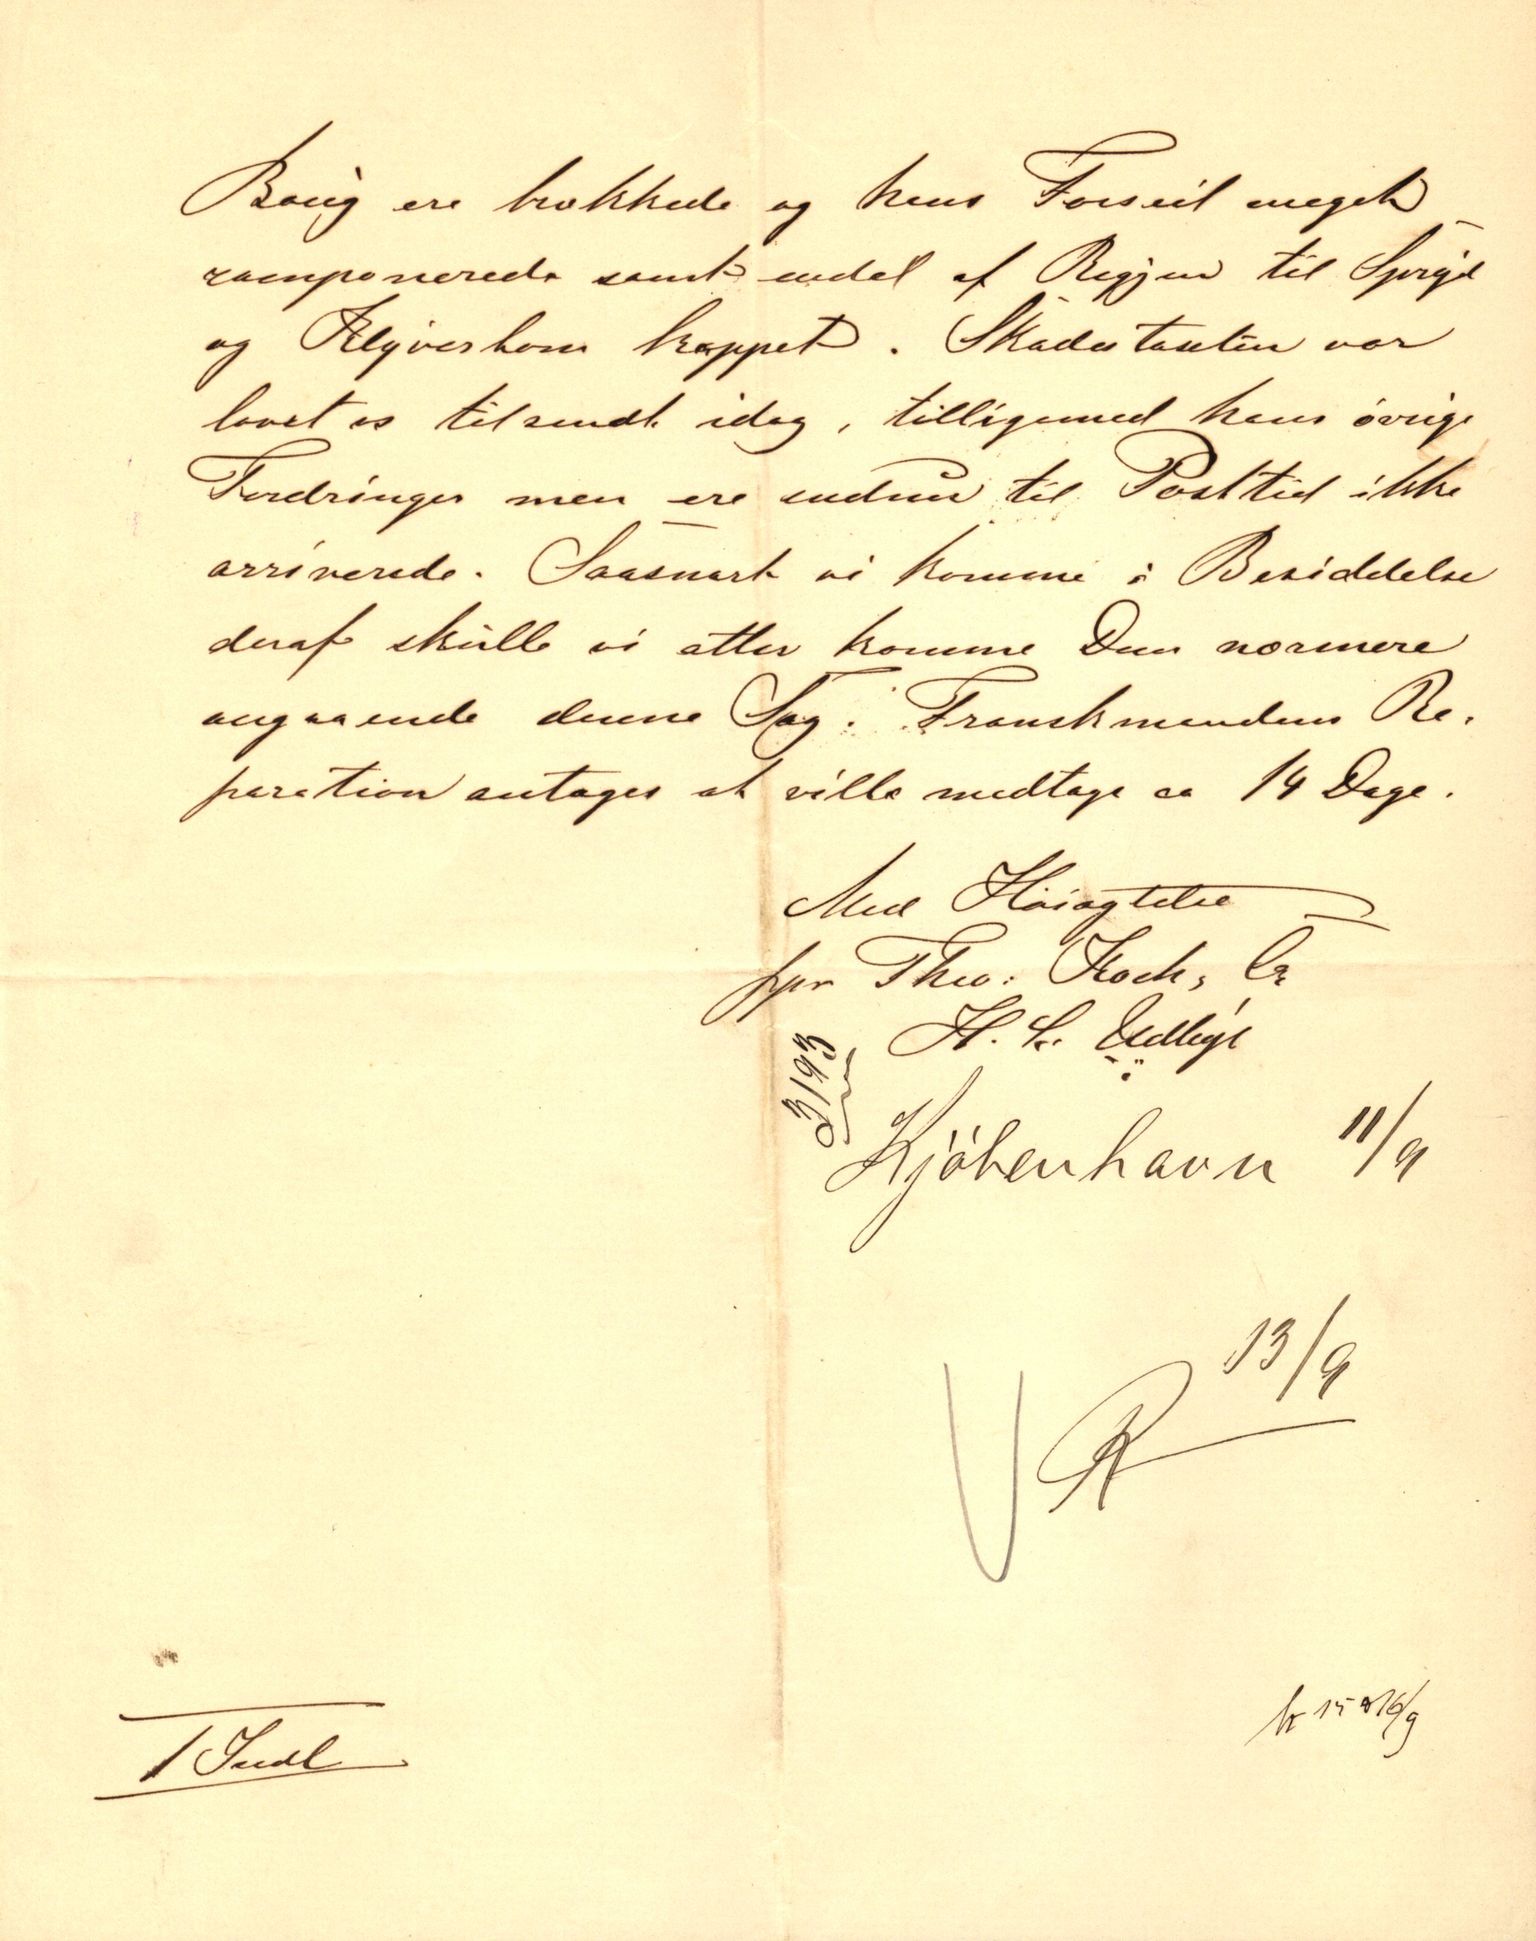 Boug ere brækkede og hans Forseil meget
ramponerede samt endel af Rigjen til Sprÿd
og Klÿverbom kappet. Skadestaxten var
lovet os tilsendt idag, tilligemed hans övrige
Fordringer men ere endnu til Posttid ikke
arriverede. Saasnart vi komme i Besiddelse
deraf skulle vi atter komme Dem nærmere
angaaende denne Sag. Franskmandens Re-
paration antages at ville medtage ca 14 Dage.
Med Höiagtelse
ppr Theo: Koch, Co
H. C.
3193
Kjöbenhavn 11/9
13/9
R
1 Indl
15 16/9